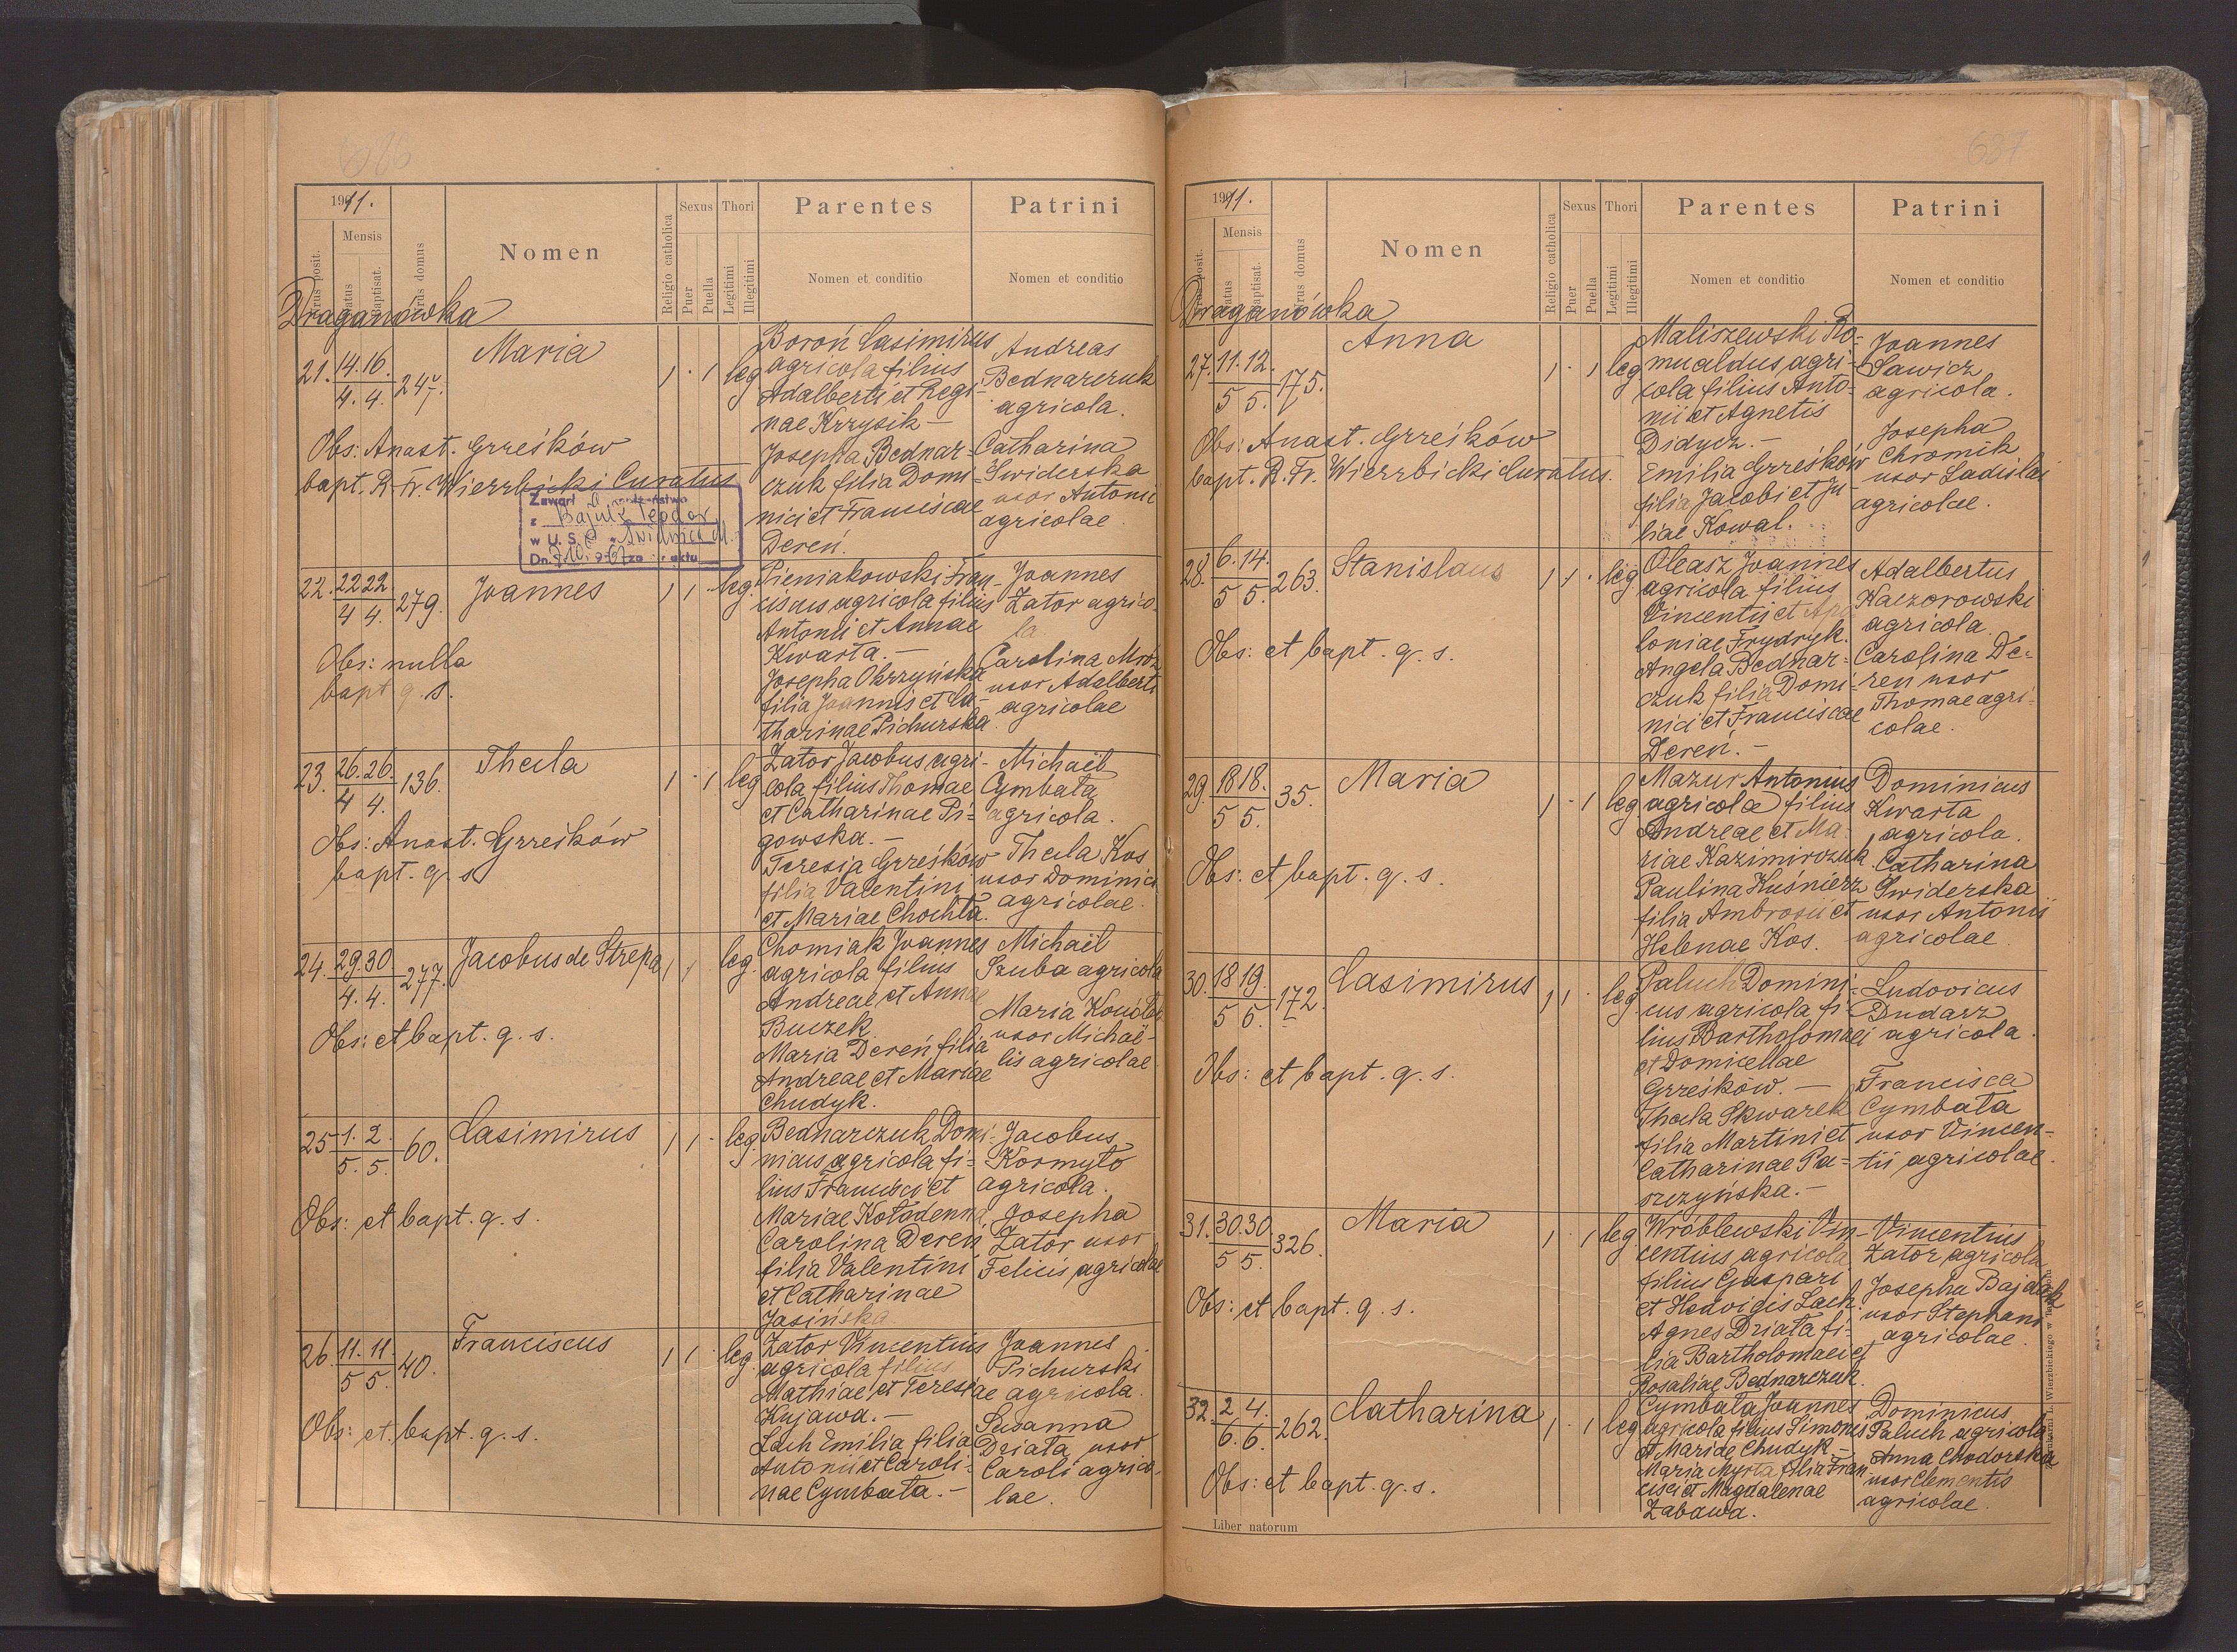 1911.
Mensis
Nomen
Religio catholica
Sexus
Puer
Puella
Thori
Legitimi
Illegitimi
Parentes
Nomen et conditio
Patrini
Nomen et conditio
Draganówka
21. 14. 16. 247. Maria 1 · 1 leg
4. 4.
Boroń Casimirus
agricola filius
Adalberti et Regi-
nae Krzysik –
Josepha Bednar-
czuk filia Domi-
nici et Franciscae
Dereń.
Andreas
Bednarczuk
agricola.
Catharina
Swiderska
uxor Antonii
agricolae
Obs: Anast. Grześków
bapt. R. Fr. Wierzbicki Curatus
Zawarł
z Bajuk Teodor
w U. S. C.
22. 22 22. 279. Joannes 1 1 · leg.
4 4.
Pieniakowski Fran-
ciscus agricola filius
Antonii et Annae
Kwarta. –
Josepha Obrzyńska
filia Joannis et Ca-
tharinae Pichurska.
Joannes
Zator agrico-
la
Carolina Mróz
uxor Adalberti
agricolae
Obs: nulla
bapt q. s.
23. 26. 26. 136. Thecla 1 · 1 leg
4 4.
Zator Jacobus agri-
cola filius Thomae
et Catharinae Pi-
gowska. –
Teresia Grześków
filia Valentini
et Mariae Chochla.
Michaël
Cymbała
agricola.
Thecla Kos
uxor Dominici
agricolae.
Obs: Anast. Grześków
bapt. q. s.
24. 29. 30 277. Jacobus de Strepa 1 1 · leg.
4. 4.
Chomiak Joannes
agricola filius
Andreae et Annae
Buczek
Maria Dereń filia
Andreae et Mariae
Chudyk.
Michaël
Szuba agricola
Maria
uxor Michaë-
lis agricolae.
Obs: et bapt. q. s.
25 1. 2. 60. Casimirus 1 1 · leg.
5. 5.
Bednarczuk Domi-
nicus agricola fi-
lius Francisci et
Mariae Kołodenna
Carolina Dereń
filia Valentini
et Catharinae
Jasińska
Jacobus
Kormyło
agricola.
Josepha
Zator uxor
Felicis agricolae
Obs: et bapt. q. s.
26. 11. 11. 40. Franciscus 1 1 · leg.
5 5.
Zator Vincentius
agricola filius
Mathiae et Teresiae
Kujawa. –
Lach Emilia filia
Antonii et Caroli-
nae Cymbała. –
Joannes
Pichurski
agricola.
Susanna
Dziata uxor
Caroli agrico-
lae.
Obs: et bapt. q. s.
687
1911.
Mensis
Nomen
Religio catholica
Sexus
Puer
Puella
Thori
Legitimi
Illegitimi
Parentes
Nomen et conditio
Patrini
Nomen et conditio
Draganówka
27. 11. 12. 175. Anna 1 · 1 leg
5 5.
Maliszewski Ro-
mualdus agri-
cola filius Anto-
nii et Agnetis
Didycz. –
Emilia Grześków
filia Jacobi et Ju-
liae Kowal.
Joannes
Sawicz
agricola.
Josepha
Chromik
uxor Ladislai
agricolae.
Obs: Anast. Grześków
bapt. R. Fr. Wierzbicki Curatus.
28. 6. 14. 263. Stanislaus 1 1 · leg
5 5.
Oleasz Joannes
agricola filius
Vincentii et Apo
loniae Frydryk.
Angela Bednar-
czuk filia Domi-
nici et Franciscae
Dereń. –
Adalbertus
Kaczorowski
agricola.
Carolina De-
ren uxor
Thomae agri-
colae.
Obs: et bapt. q. s.
29. 18 18. 35. Maria 1 · 1 leg
5 5.
Mazur Antonius
agricola filius
Andreae et Ma-
riae Kazimirczuk
Paulina Kuśnierz
filia Ambrosii et
Helenae Kos.
Dominicus
Kwarta
agricola.
Catharina
Swiderska
uxor Antonii
agricolae.
Obs: et bapt. q. s.
30. 18 19. 172. Casimirus 1 1 · leg
5 5.
Paluch Domini-
cus agricola fi-
lius Bartholomaei
et Domicellae
Grześków. –
Thecla Skwarek
filia Martini et
Catharinae Pa-
szczyńska. –
Ludovicus
Dudarz
agricola.
Francisca
Cymbała
uxor Vincen-
tii agricolae.
Obs: et bapt. q. s.
31. 30. 30. 326. Maria 1 · 1 leg
5 5.
Wróblewski Vin-
centius agricola
filius Gaspari
et Hedvigis Lach.
Agnes Dziata fi-
lia Bartholomaei et
Rosaliae Bednarczuk.
Vincentius
Zator agricola
Josepha Bajdak
uxor Stephani
agricolae.
Obs: et bapt. q. s.
32. 2 4. 262. Catharina 1 · 1 leg
6. 6.
Cymbała Joannes
agricola filius Simonis
et Mariae Chudyk –
Maria Myrta filia Fran
cisci et Magdalenae
Zabawa.
Dominicus
Paluch agricola
Anna Chodorska
uxor Clementis
agricolae.
Obs: et bapt. q. s.
Liber natorum